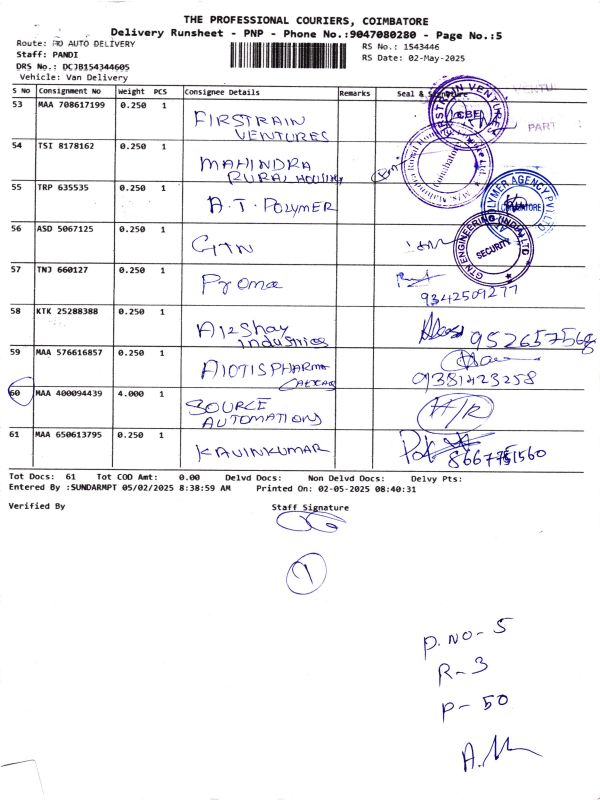 THE PROFESSIONAL COURIERS, COIMBATORE
Delivery Runsheet - PNP - Phone No.:9047080280 - Page No.:5
Route: MO AUTO DELIVERY
Staff: PANDI
DRS No.: DCJB154344605
Vehicle: Van Delivery
RS No.: 1543446
RS Date: 02-May-2025
S No Consignment No Weight PCS Consignee Details Remarks Seal & Signature
53 MAA 708617199 0.250 1 FIRSTRAIN VENTURES
FIRSTRAIN VENTURES
CBE
PART
54 TSI 8178162 0.250 1 MAHINDRA RURAL HOUSING
55 TRP 635535 0.250 1 A.T. POLYMER
POLYMER AGENCY PVT LTD
COIMBATORE
56 ASD 5067125 0.250 1 GTN
GTN ENGINEERING (INDIA) LTD
SECURITY
57 TNJ 660127 0.250 1
9342509277
58 KTK 25288388 0.250 1
9526575768
59 MAA 576616857 0.250 1
09381423258
60 MAA 400094439 4.000 1 SOURCE AUTOMATIONS H/R
61 MAA 650613795 0.250 1 KAVINKUMAR
Tot Docs: 61 Tot COD Amt: 0.00 Delvd Docs: Non Delvd Docs: Delvy Pts:
Entered By :SUNDARMPT 05/02/2025 8:38:59 AM Printed On: 02-05-2025 08:40:31
Verified By Staff Signature
1
P.NO- 5
R-3
P- 50